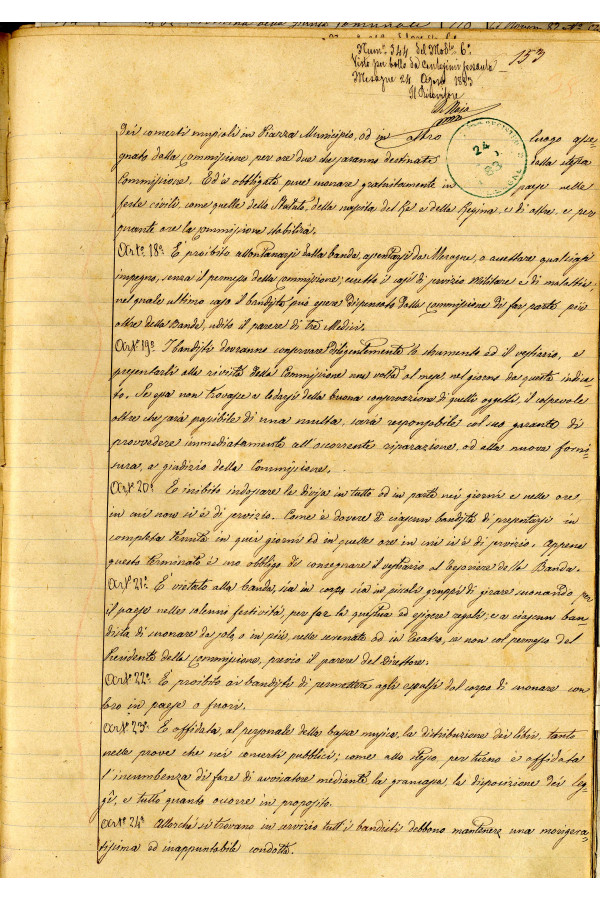 Num.° 344 del Mod.lo 6°
Visto per bollo da centesimi sessanta
Mesagne 24 Agosto 1883
Il Ricevitore
153
UFFICIO REGISTRO
24
83
MESAGNE
dei concerti musicali in Piazza Municipio, od in altro luogo asse-
gnato dalla Commissione, per ore due che saranno destinate dalla stessa
Commissione. Ed è obbligata pure suonare gratuitamente in paese nelle
feste civili, come quelle dello Statuto, della nascita del Re e della Regina, e di altre, e per
quante ore la Commissione stabilirà.
Art.° 18° È proibito allontanarsi dalla banda, assentarsi da Mesagne, o accettare qualsiasi
impegno, senza il permesso della Commissione; eccetto i casi di servizio Militare e di malattie;
nel quale ultimo caso il bandista può essere dispensato dalla Commissione di far parte più
oltre della Banda, udito il parere di tre Medici.
Art.° 19° I bandisti dovranno conservare diligentemente lo strumento ed il vestiario, e
presentarli alla rivista della Commissione una volta al mese nel giorno da questa indica-
to. Se essa non trovasse a lodarsi della buona conservazione di quelli oggetti, il colpevole
oltre che sarà passibile di una multa, sarà responsabile col suo garante di
provvedere immediatamente all'occorrente riparazione, od alla nuova forni-
tura, a giudizio della Commissione.
Art.° 20° È inibito indossare la divisa in tutto od in parte nei giorni e nelle ore
in cui non si è di servizio. Come è dovere di ciascun bandista di presentarsi in
completa tenuta in quei giorni ed in quelle ore in cui si è di servizio. Appena
questo terminato è suo obbligo di consegnare il vestiario al Cassiere della Banda.
Art.° 21° È vietato alla banda, sia in corpo sia in piccoli gruppi di girare suonando per
il paese nelle solenni festività, per far la questua ed esigere regali; e a ciascun ban-
dista di suonare da solo, o in più, nelle serenate od in teatro, se non col permesso del
Presidente della Commissione, previo il parere del Direttore.
Art.° 22° È proibito ai bandisti di permettere agli espulsi dal corpo di suonare con
loro in paese o fuori.
Art.° 23° È affidata, al personale della bassa musica, la distribuzione dei libri, tanto
nelle prove che nei concerti pubblici; come allo stesso, per turno è affidata
l'incumbenza di fare di avvisatore mediante la grancassa, la disposizione dei leg-
gî, e tutto quanto occorre in proposito.
Art.° 24° Allorchè si trovano in servizio tutti i bandisti debbono mantenere una morigera-
tissima ed inappuntabile condotta.